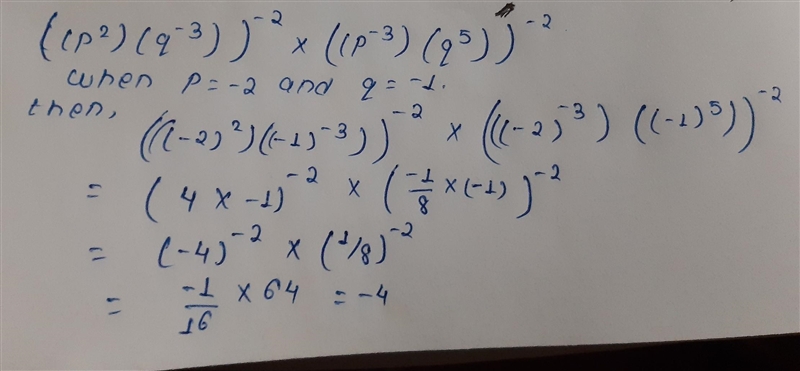 ((p²)(q⁻³))⁻² × ((p⁻³)(q⁵))⁻²
when p = -2 and q = -1.
then,
(((-2)²)((-1)⁻³))⁻² × (((-2)⁻³) ((-1)⁵))⁻²
= (4 × -1)⁻² × (-1/8 × (-1))⁻²
= (-4)⁻² × (1/8)⁻²
= -1/16 × 64 = -4